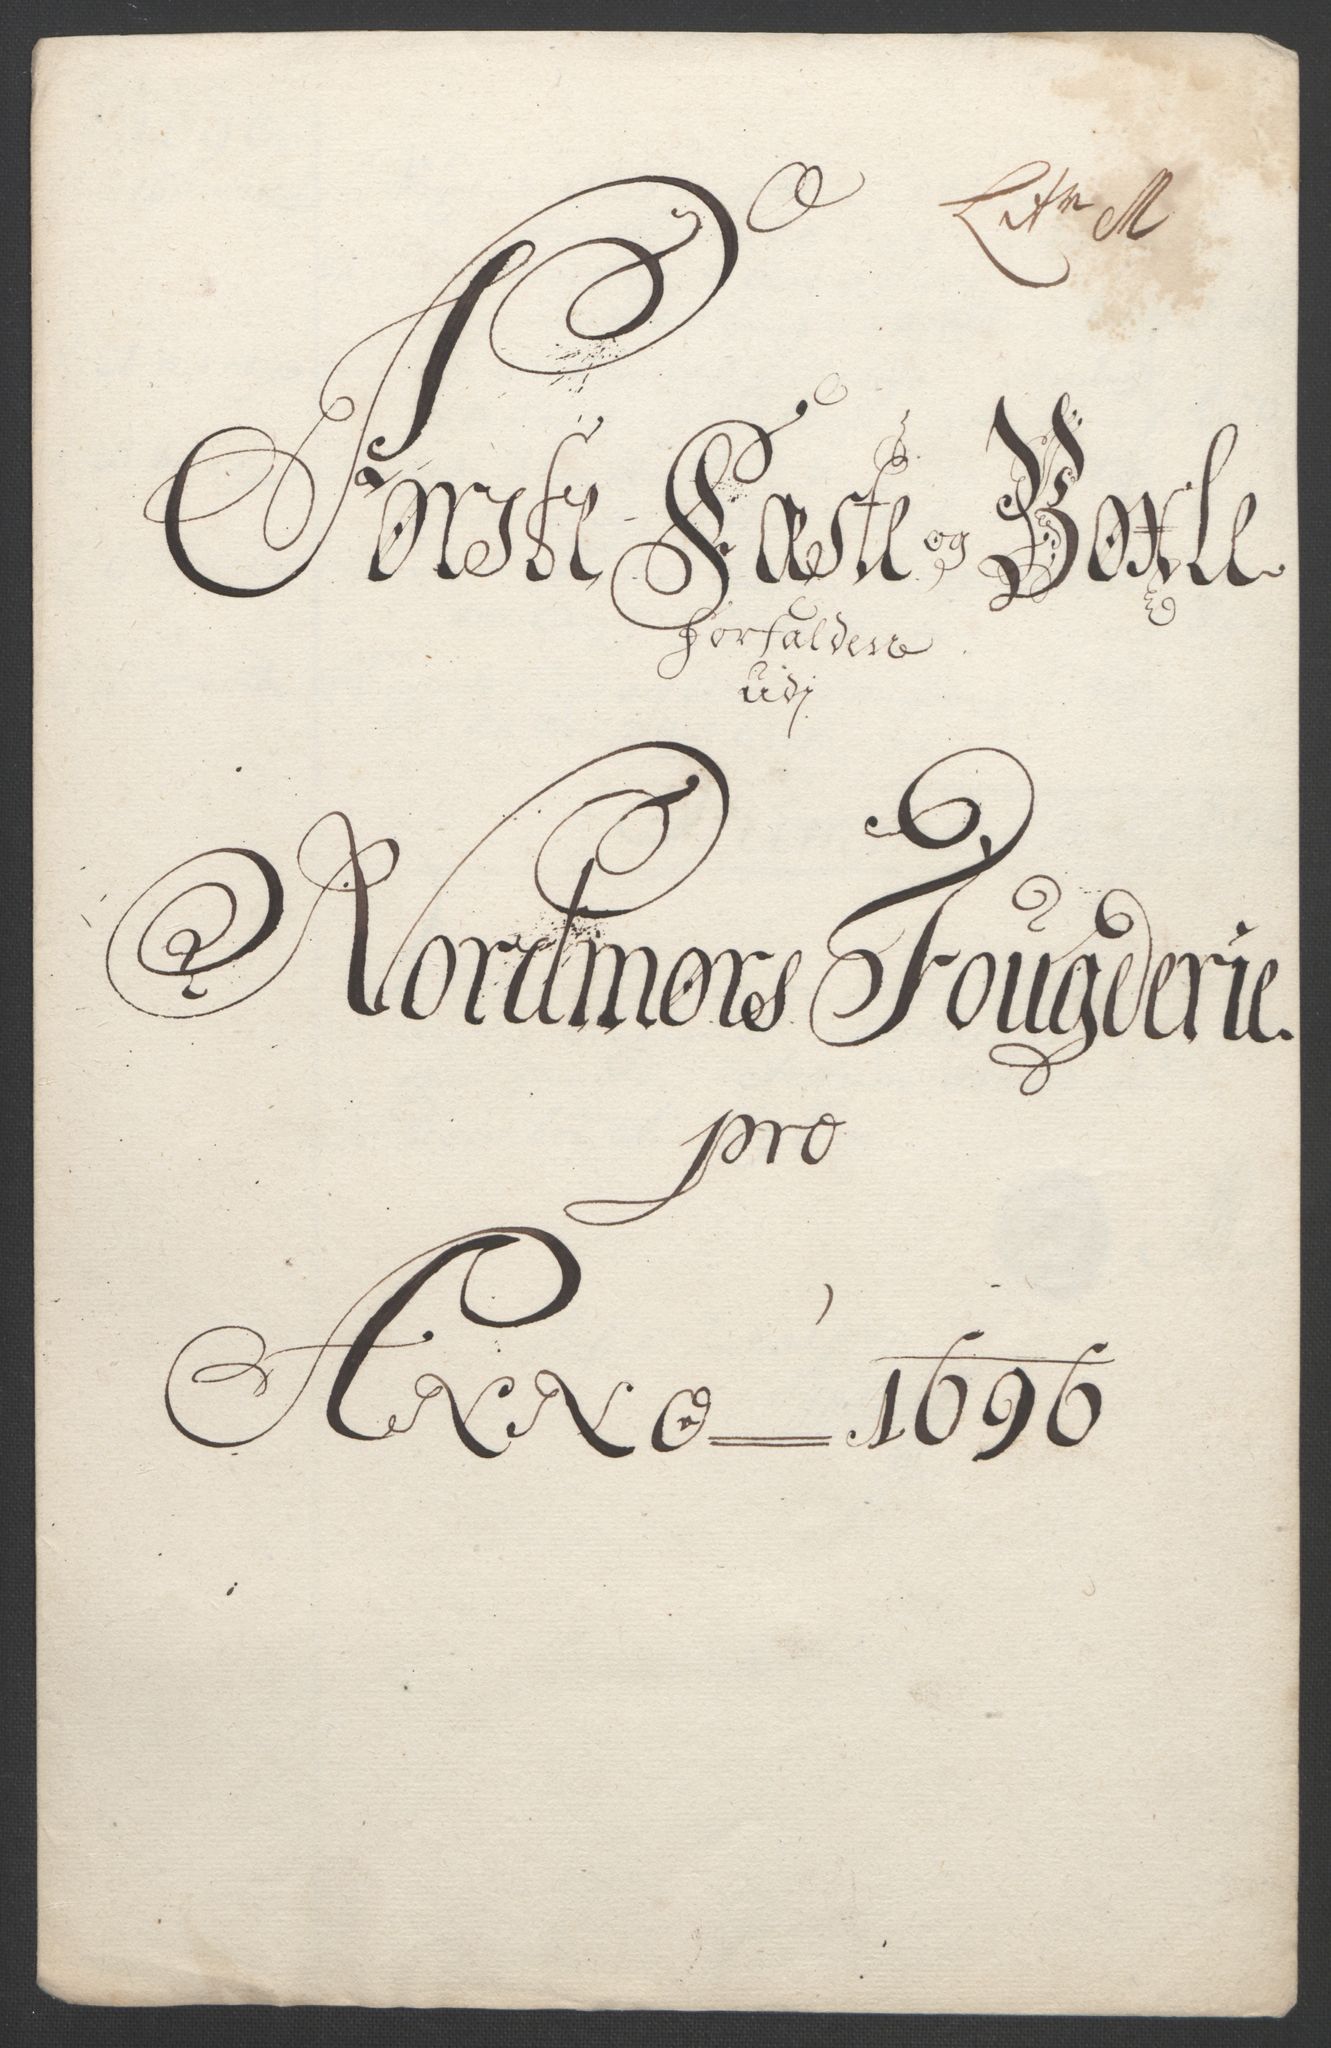 Litr M
Første Fæste og Boxle
forfalden
udj
Nordmørs Fougderie.
pro
ANNO 1696